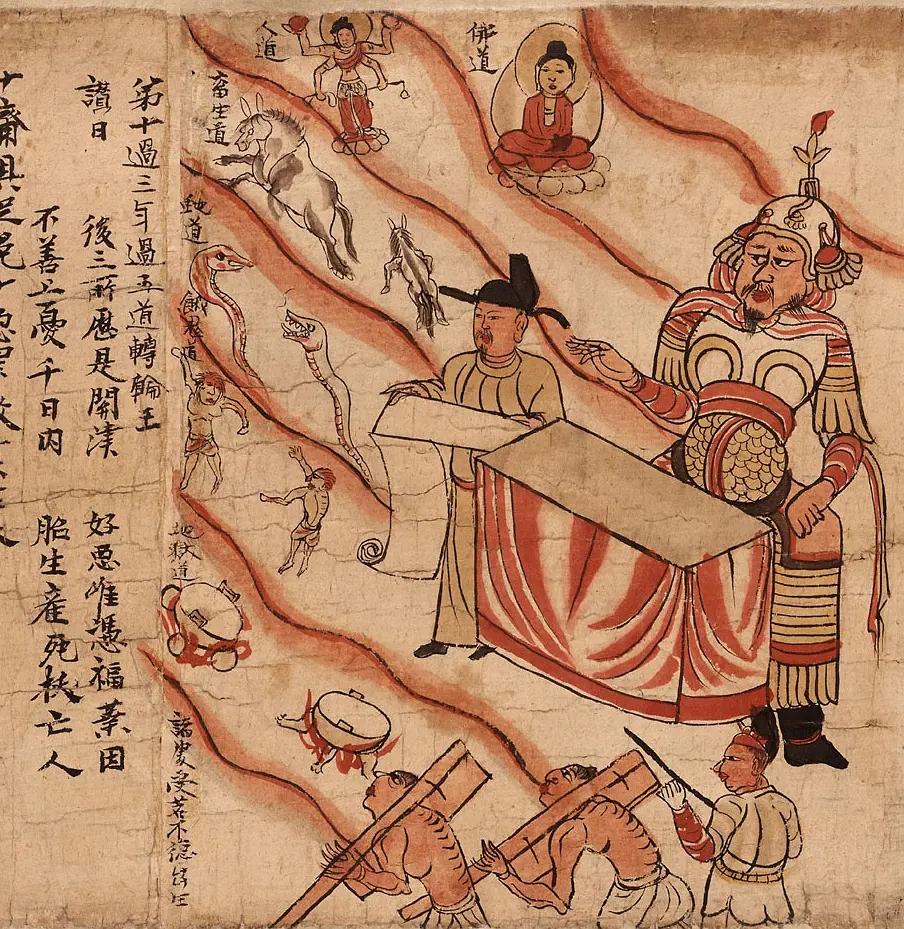 佛道
人道
畜生道
虵道
餓鬼道
地獄道
受苦不
第十過三年過五道轉輪王
讃曰 後三所歷是開津 好惡唯憑福業因
不善上憂千日內 胎生產死拔亡人
十齋具足免十惡罪